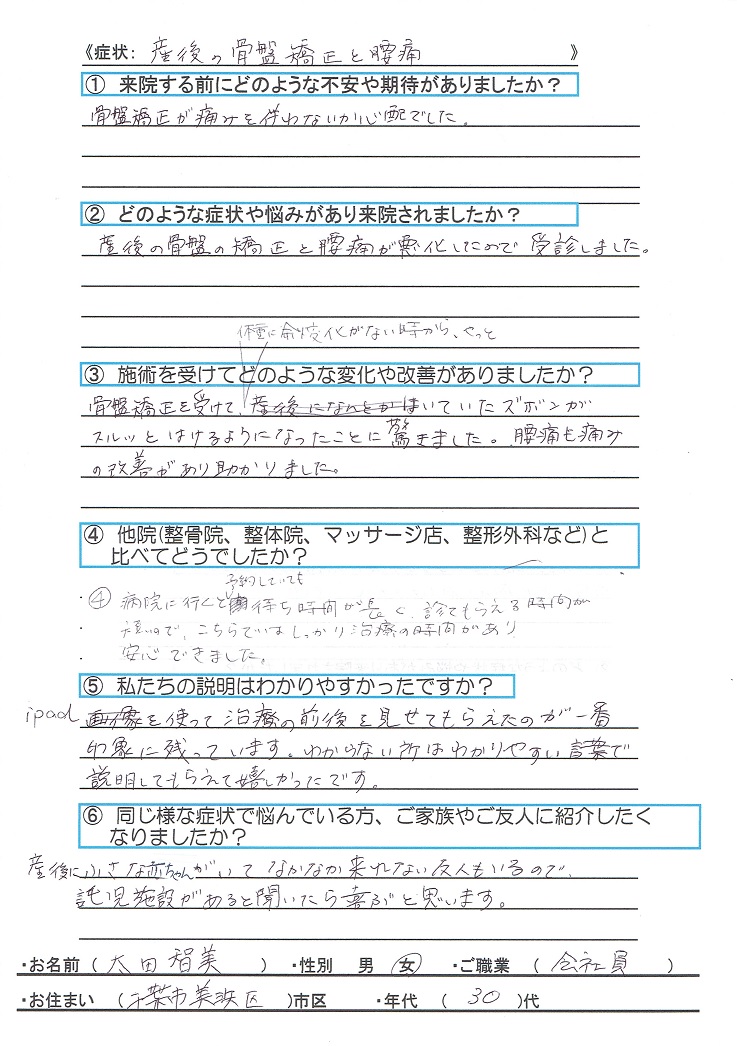 《症状: 産後の骨盤矯正と腰痛 》
① 来院する前にどのような不安や期待がありましたか?
骨盤矯正が痛みを伴わないか心配でした。
② どのような症状や悩みがあり来院されましたか?
産後の骨盤の矯正と腰痛が悪化したので受診しました。
体重に余り変化がない時から、やっと
③ 施術を受けてどのような変化や改善がありましたか?
骨盤矯正を受けて、産後になんとかはいていたズボンが
スルッとはけるようになったことに驚きました。腰痛も痛み
の改善があり助かりました。
④ 他院(整骨院、整体院、マッサージ店、整形外科など)と
比べてどうでしたか?
予約していても
④ 病院に行くと待ち時間が長く、診てもらえる時間が
短いので、こちらではしっかり治療の時間があり
安心できました。
⑤ 私たちの説明はわかりやすかったですか?
ipad 画像を使って治療の前後を見せてもらえたのが一番
印象に残っています。わからない所はわかりやすい言葉で
説明してもらえて嬉しかったです。
⑥ 同じ様な症状で悩んでいる方、ご家族やご友人に紹介したく
なりましたか?
産後に小さな赤ちゃんがいてなかなか来れない友人もいるので、
託児施設があると聞いたら喜ぶと思います。
・お名前 ( 太田 智美 ) ・性別 男 女 ・ご職業 ( 会社員 )
・お住まい (千葉市美浜区 )市区 ・年代 ( 30 )代